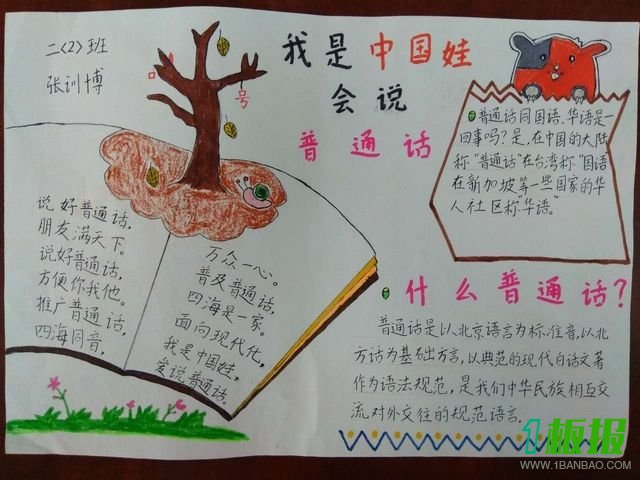 二〈2〉班
张训博
口
号
我是中国娃
会说
普通话
普通话同国语、华语是一
回事吗?是,在中国的大陆
称"普通话"在台湾称"国语
在新加坡等一些国家的华
人社区称"华语"。
说好普通话,
朋友满天下。
说好普通话,
方便你我他。
推广普通话,
四海同音,
万众一心。
普及普通话,
四海是一家。
面向现代化,
我是中国娃,
爱说普通话。
什么普通话?
普通话是以北京语言为标准音,以北
方话为基础方言,以典范的现代白话文著
作为语法规范,是我们中华民族相互交
流对外交往的规范语言.
1板报
WWW.1BANBAO.COM